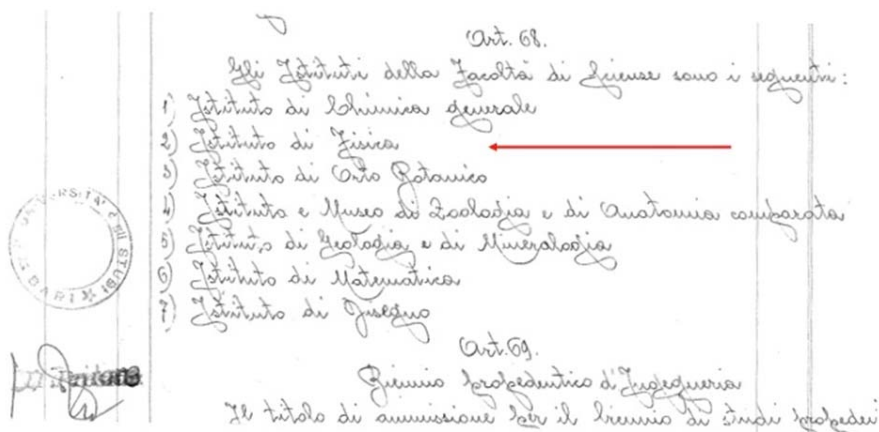 Art. 68.
Gli Istituti della Facoltà di Scienze sono i seguenti:
1) Istituto di Chimica generale
2) Istituto di Fisica
3) Istituto di Orto Botanico
4) Istituto e Museo di Zoologia e di Anatomia comparata
5) Istituto di Geologia e di Mineralogia
6) Istituto di Matematica
7) Istituto di Disegno
UNIVERSITÀ STUDI BARI
Art. 69.
Biennio propedeutico d'Ingegneria
Il titolo di ammissione per il biennio di studi propedeu